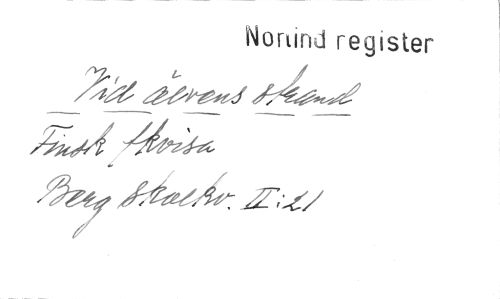 Norlind register
Vid älvens strand
Finsk fkvisa
Berg Skolkv. II:21